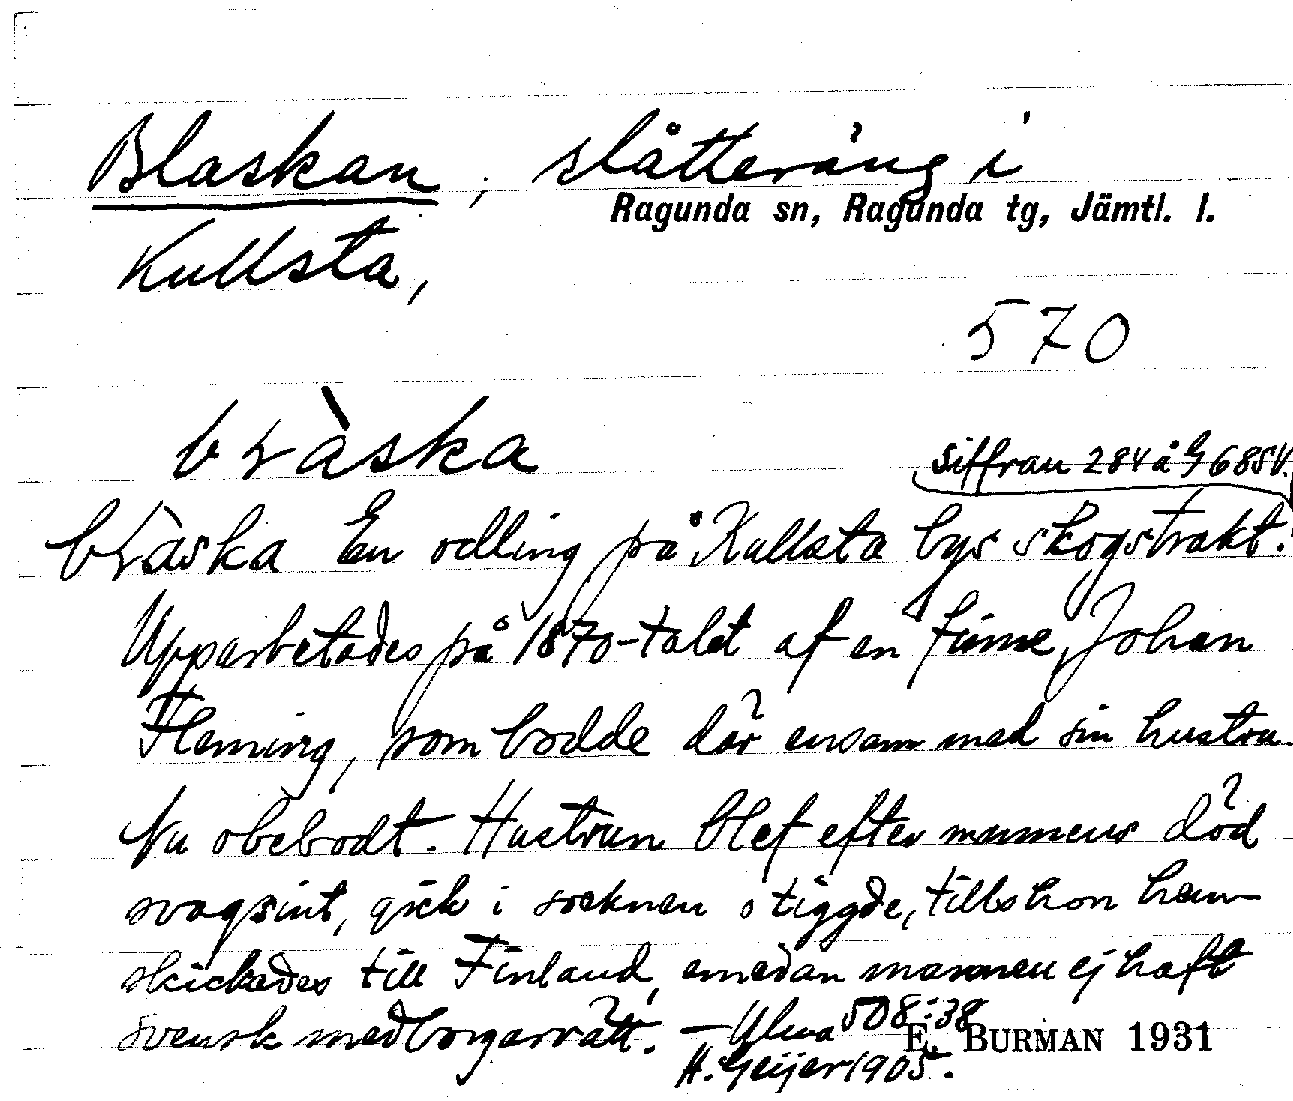 Blaskan, slåtteräng i
Ragunda sn, Ragunda tg, Jämtl. l.
Kullsta,
570
bràska
siffran 284 å G 6854.
bràska En odling på Kullsta bys skogstrakt.
Upparbetades på 1870-talet af en finne, Johan
Fleming, som bodde där ensam med sin hustru.
Nu obebodt. Hustrun blef efter mannens död
svagsint, gick i socknen o tiggde, tills hon hem-
skickades till Finland, emedan mannen ej haft
svensk medborgarrätt. — Ulma 508:38
E. BURMAN 1931
H. Geijer 1905.